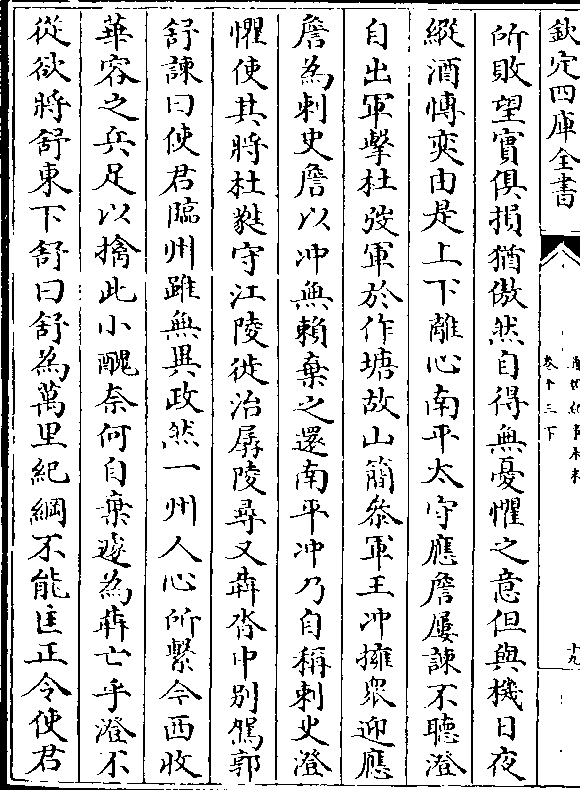 欽定四庫全書
卷十三下
十九
所敗望實俱損猶傲然自得無憂懼之意但與機日夜
縱酒愽奕由是上下離心南平太守應詹屢諫不聽澄
自出軍擊杜弢軍於作塘故山簡叅軍王冲擁衆迎應
詹為刺史詹以冲無賴棄之還南平冲乃自稱刺史澄
懼使其將杜蕤守江陵徙治孱陵尋又犇沓中别駕郭
舒諫曰使君臨州雖無異政然一州人心所繫今西收
華容之兵足以擒此小醜奈何自棄遽為犇亡乎澄不
從欲將舒東下舒曰舒為萬里紀綱不能匡正令使君